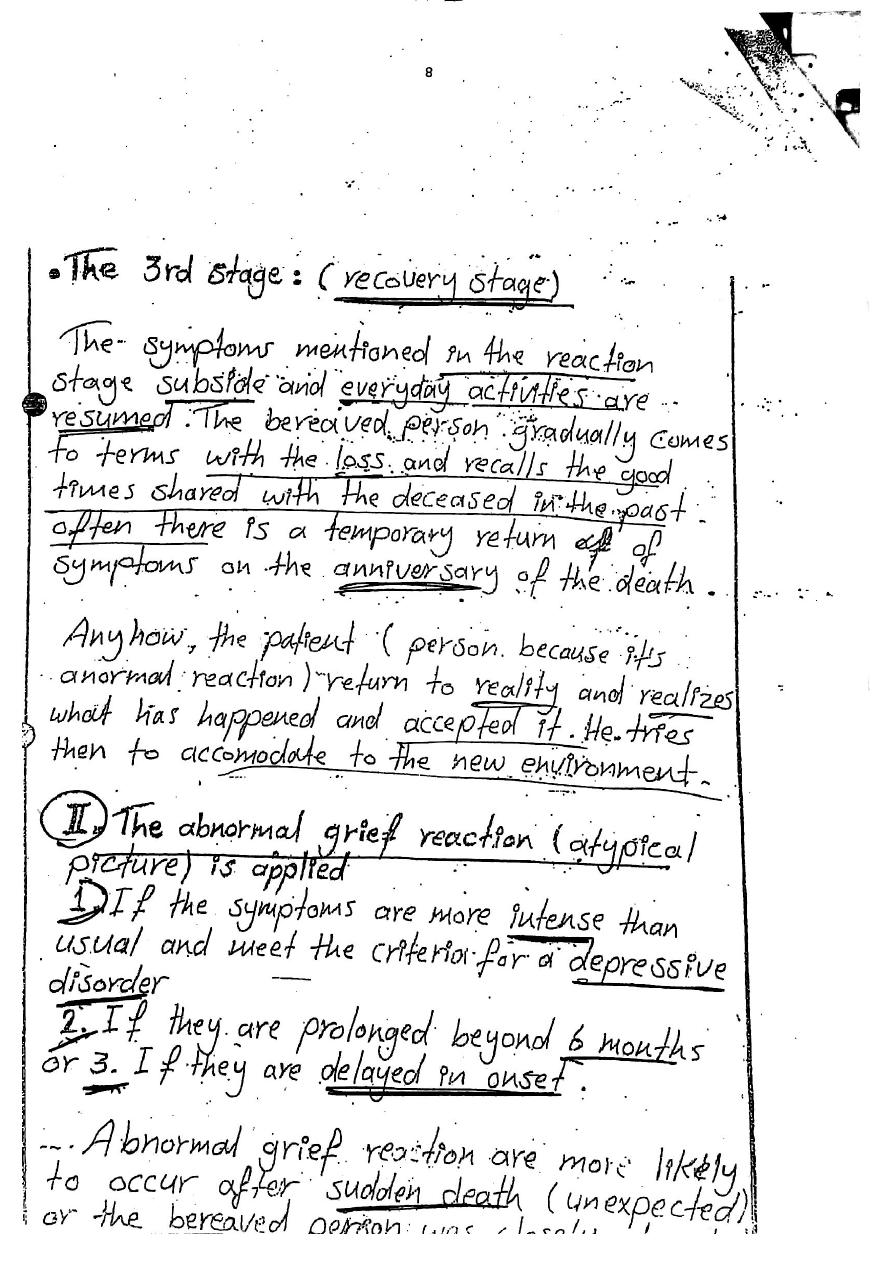 8
• The 3rd stage: (recovery stage)
The symptoms mentioned in the reaction
stage subside and everyday activities are
resumed. The bereaved person gradually comes
to terms with the loss and recalls the good
times shared with the deceased in the past
often there is a temporary return of
symptoms on the anniversary of the death.
Anyhow, the patient (person because it's
anormal reaction) return to reality and realizes
what has happened and accepted it. He tries
then to accomodate to the new environment.
II. The abnormal grief reaction (atypical
picture) is applied
1. If the symptoms are more intense than
usual and meet the criteria for a depressive
disorder
2. If they are prolonged beyond 6 months
or 3. If they are delayed in onset.
... Abnormal grief reaction are more likely
to occur after sudden death (unexpected)
or the bereaved person was closely